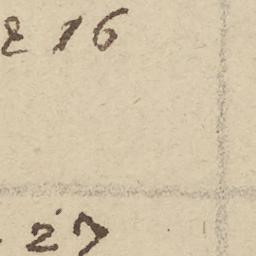 2 16
27